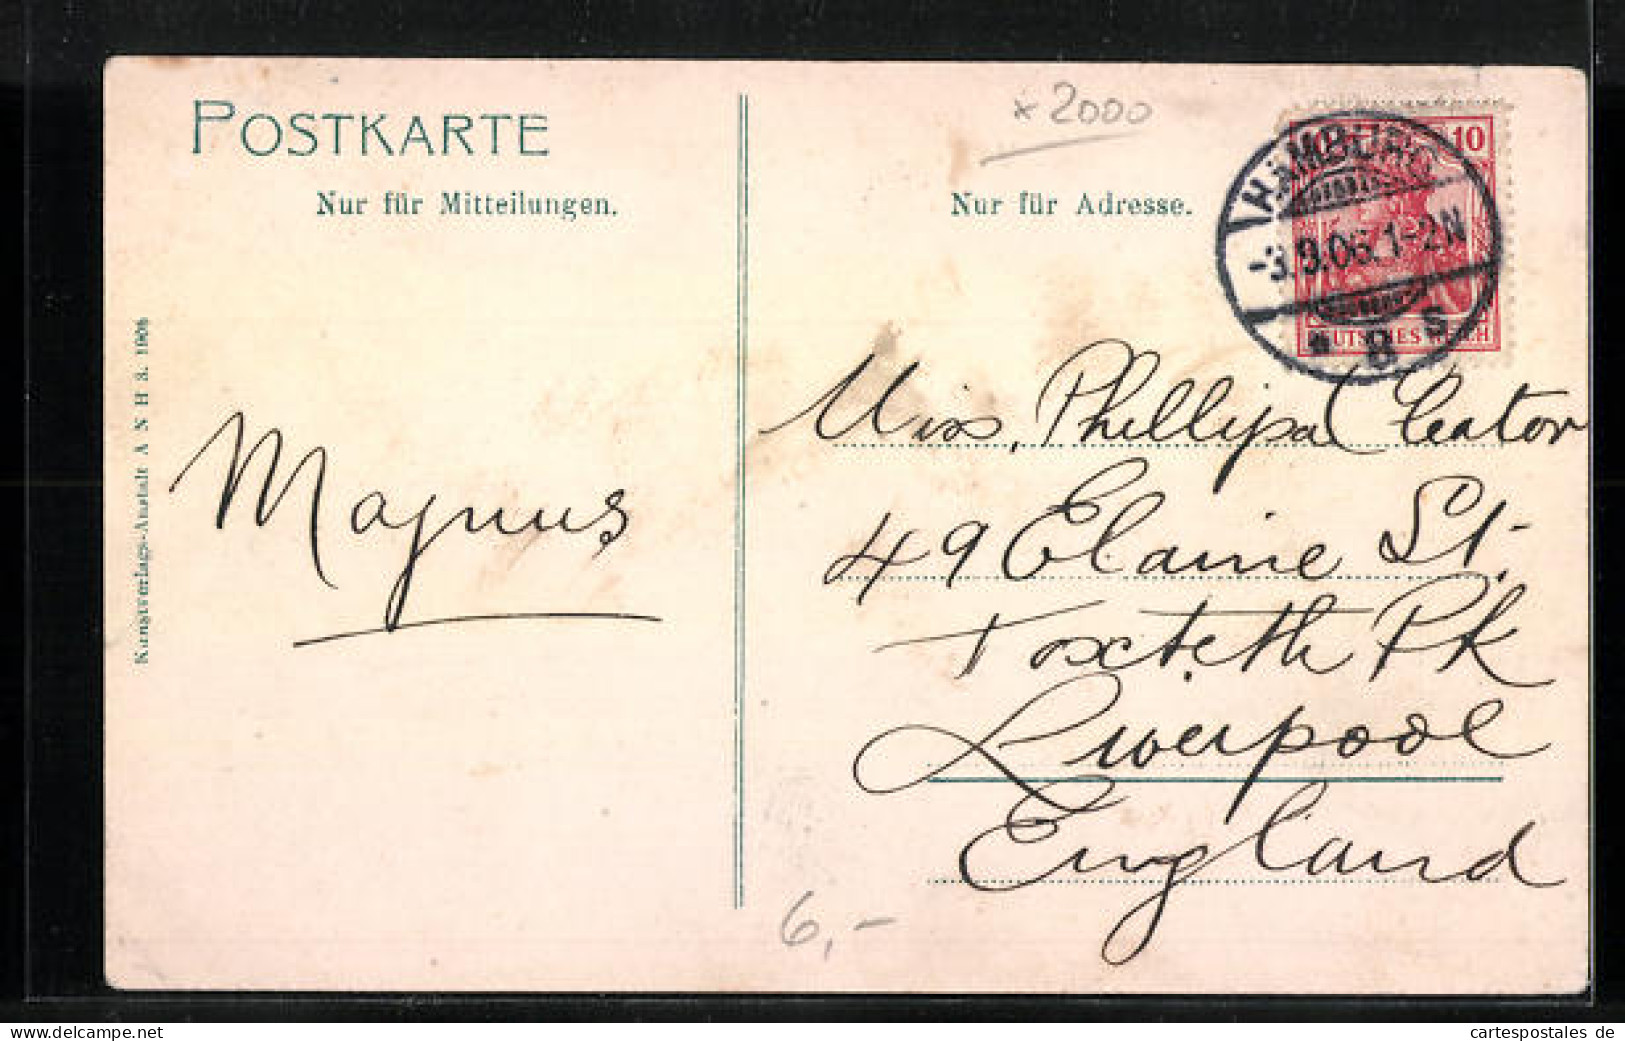 POSTKARTE
Nur für Mitteilungen.
Nur für Adresse.
× 2000
10
HAMBURG
-3.9.06.1-2N
* 8 s
DEUTSCHES REICH
Kunstverlags-Anstalt A N H 3. 1906
Magnus
Miss, Phillipa Cleator
49 Elaine St.
Toxteth Pk
Liverpool
England
6,-
cartespostales de
www.delcampe.net